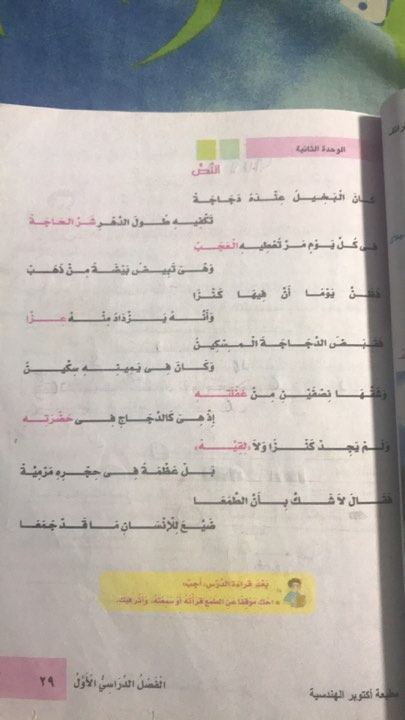 الوحدة الثانية
النص
كَانَ الْبَخِيلُ عِنْدَهُ دَجَاجَةٌ
تَكْفِيهِ طُولَ الدَّهْرِ شَرَّ الْحَاجَةْ
فِى كُلِّ يَوْمٍ مَرَّ تُعْطِيهِ الْعَجَبْ
وَهْىَ تَبِيضُ بَيْضَةً مِنْ ذَهَبْ
فَظَنَّ يَوْمًا أَنَّ فِيهَا كَنْزًا
وَأَنَّهُ يَزْدَادُ مِنْهُ عِزًّا
فَقَبَضَ الدَّجَاجَةَ الْمِسْكِينُ
وَكَانَ فِى يَمِينِهِ سِكِّينُ
وَشَقَّهَا نِصْفَيْنِ مِنْ غَفْلَتِهِ
إِذْ هِىَ كَالدَّجَاجِ فِى حَضْرَتِهِ
وَلَمْ يَجِدْ كَنْزًا وَلَا لَقِيَّهْ
بَلْ عَظْمَةً فِى حِجْرِهِ مَرْمِيَّةْ
فَقَالَ لَا شَكَّ بِأَنَّ الطَّمَعَا
ضَيَّعَ لِلْإِنْسَانِ مَا قَدْ جَمَعَا
بَعْدَ قراءة الدَّرْس، أجب:
احك موقفًا عن الطمع قرأته أو سمعته، وأثر فيك.
الْفَصْلُ الدِّرَاسِىُّ الْأَوَّلُ ٢٩
مطبعة أكتوبر الهندسية